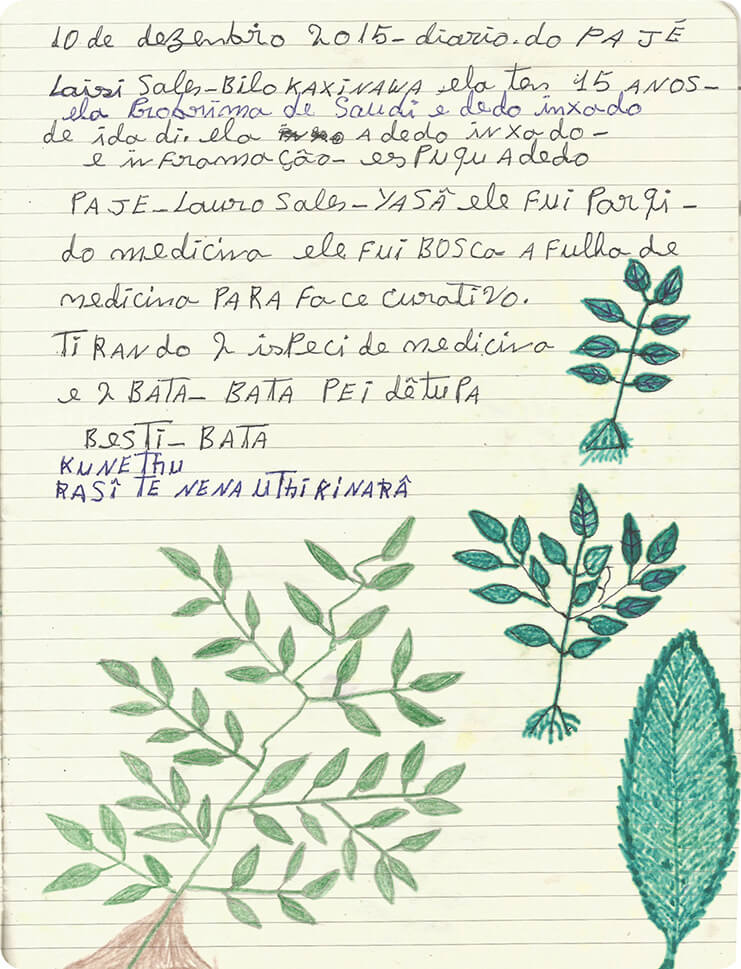 10 de dezenbiro 2015-diario.do PAJÉ
Laisi Sales-Bilo KAXINAWA ela ten 15 ANOS-
ela Probrima de Saudi e dedo inxado
de idadi. ela A dedo inxado-
e inframação-es PuquAdedo
PAJE-Lauro Sales-YASÂ ele Fui Parqi-
do medicina ele Fui BOSCA A Fulha de
medicina PARA Face curativo.
TiRANdo 2 isPeci de medicina
e 2 BATA-BATA PEI dêtuPA
BesTi-BATA
KUNETHU
RASÎ TE NENA UThiRiNARÂ